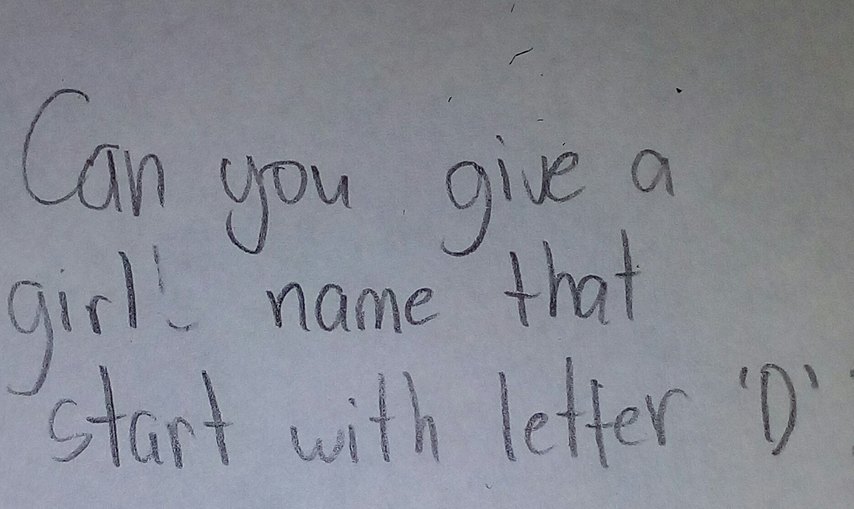 Can you give a
girl's name that
start with letter 'D'